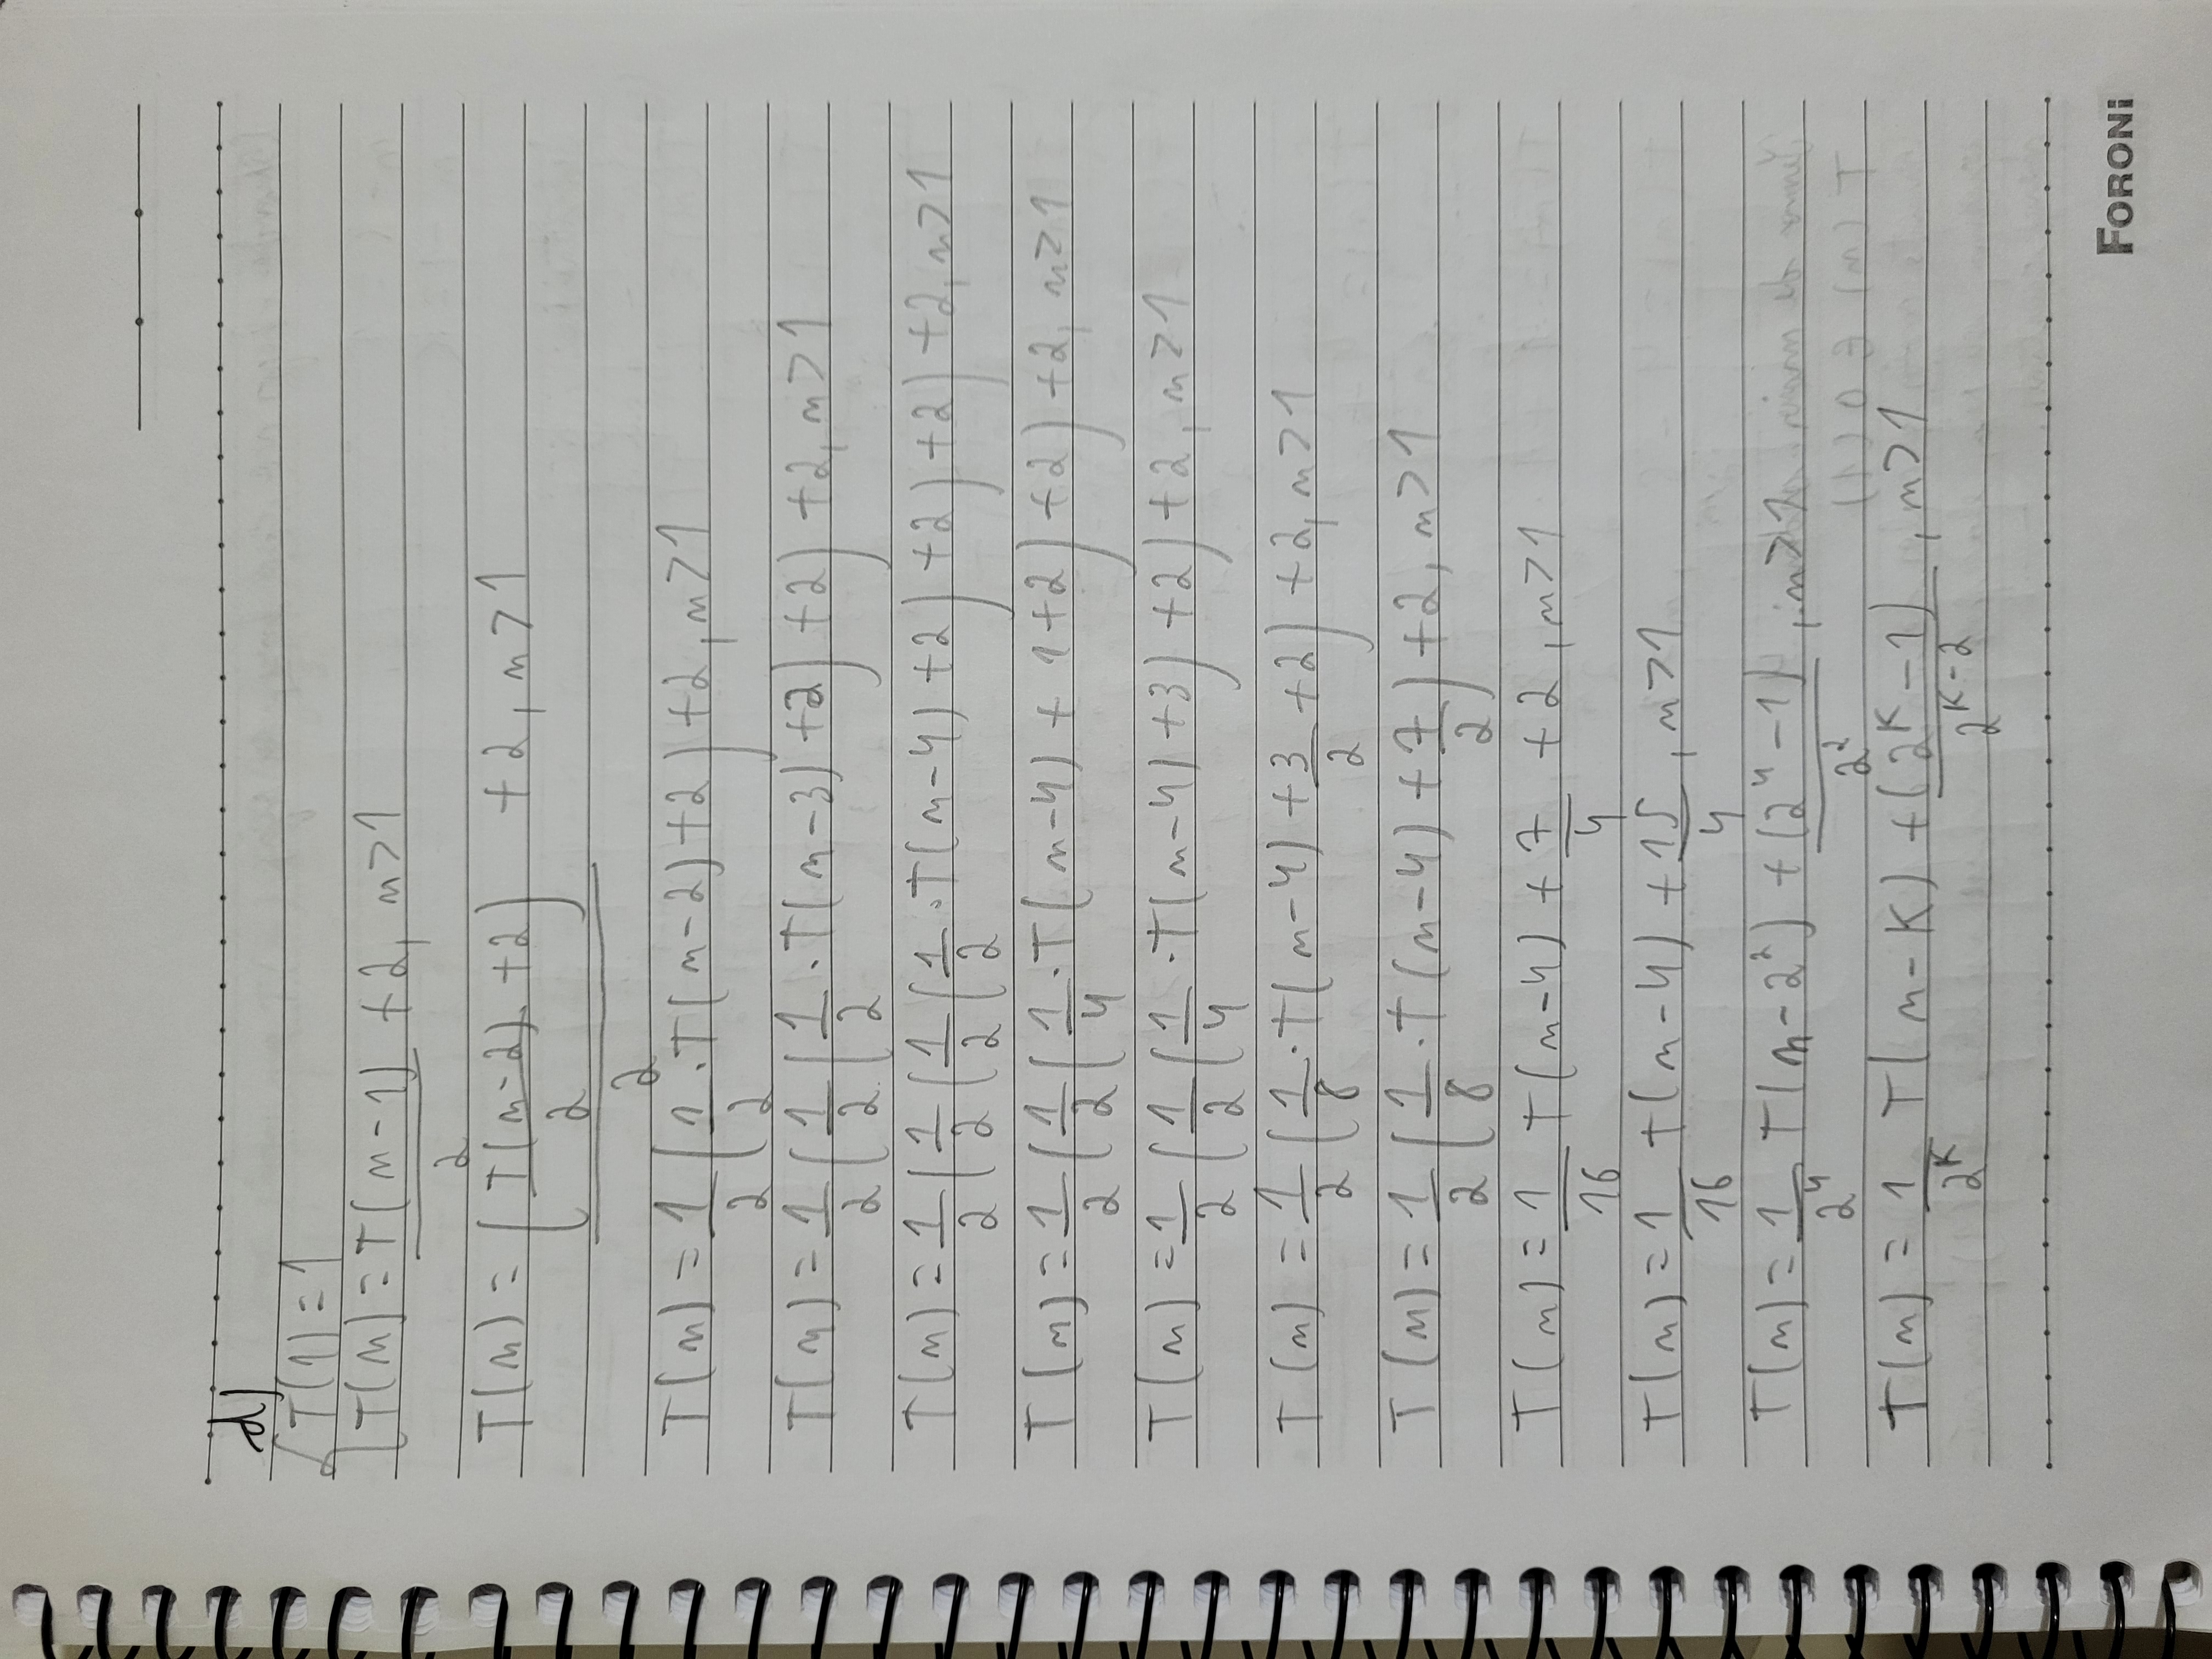 d)
T(1) = 1
T(n) = T(n-1)/2 + 2, n>1
T(n) = (T(n-2)/2 + 2)/2 + 2, n>1
T(n) = 1/2 (1/2 · T(n-2) + 2) + 2, n>1
T(n) = 1/2 (1/2 (1/2 · T(n-3) + 2) + 2) + 2, n>1
T(n) = 1/2 (1/2 (1/2 (1/2 · T(n-4) + 2) + 2) + 2) + 2, n>1
T(n) = 1/2 (1/2 (1/4 · T(n-4) + 1 + 2) + 2) + 2, n>1
T(n) = 1/2 (1/2 (1/4 · T(n-4) + 3) + 2) + 2, n>1
T(n) = 1/2 (1/8 · T(n-4) + 3/2 + 2) + 2, n>1
T(n) = 1/2 (1/8 · T(n-4) + 7/2) + 2, n>1
T(n) = 1/16 T(n-4) + 7/4 + 2, n>1
T(n) = 1/16 T(n-4) + 15/4, n>1
T(n) = 1/2⁴ T(n-2²) + (2⁴-1)/2², n>1
T(n) = 1/2ᴷ T(n-K) + (2ᴷ-1)/2ᴷ⁻², n>1
FORONI